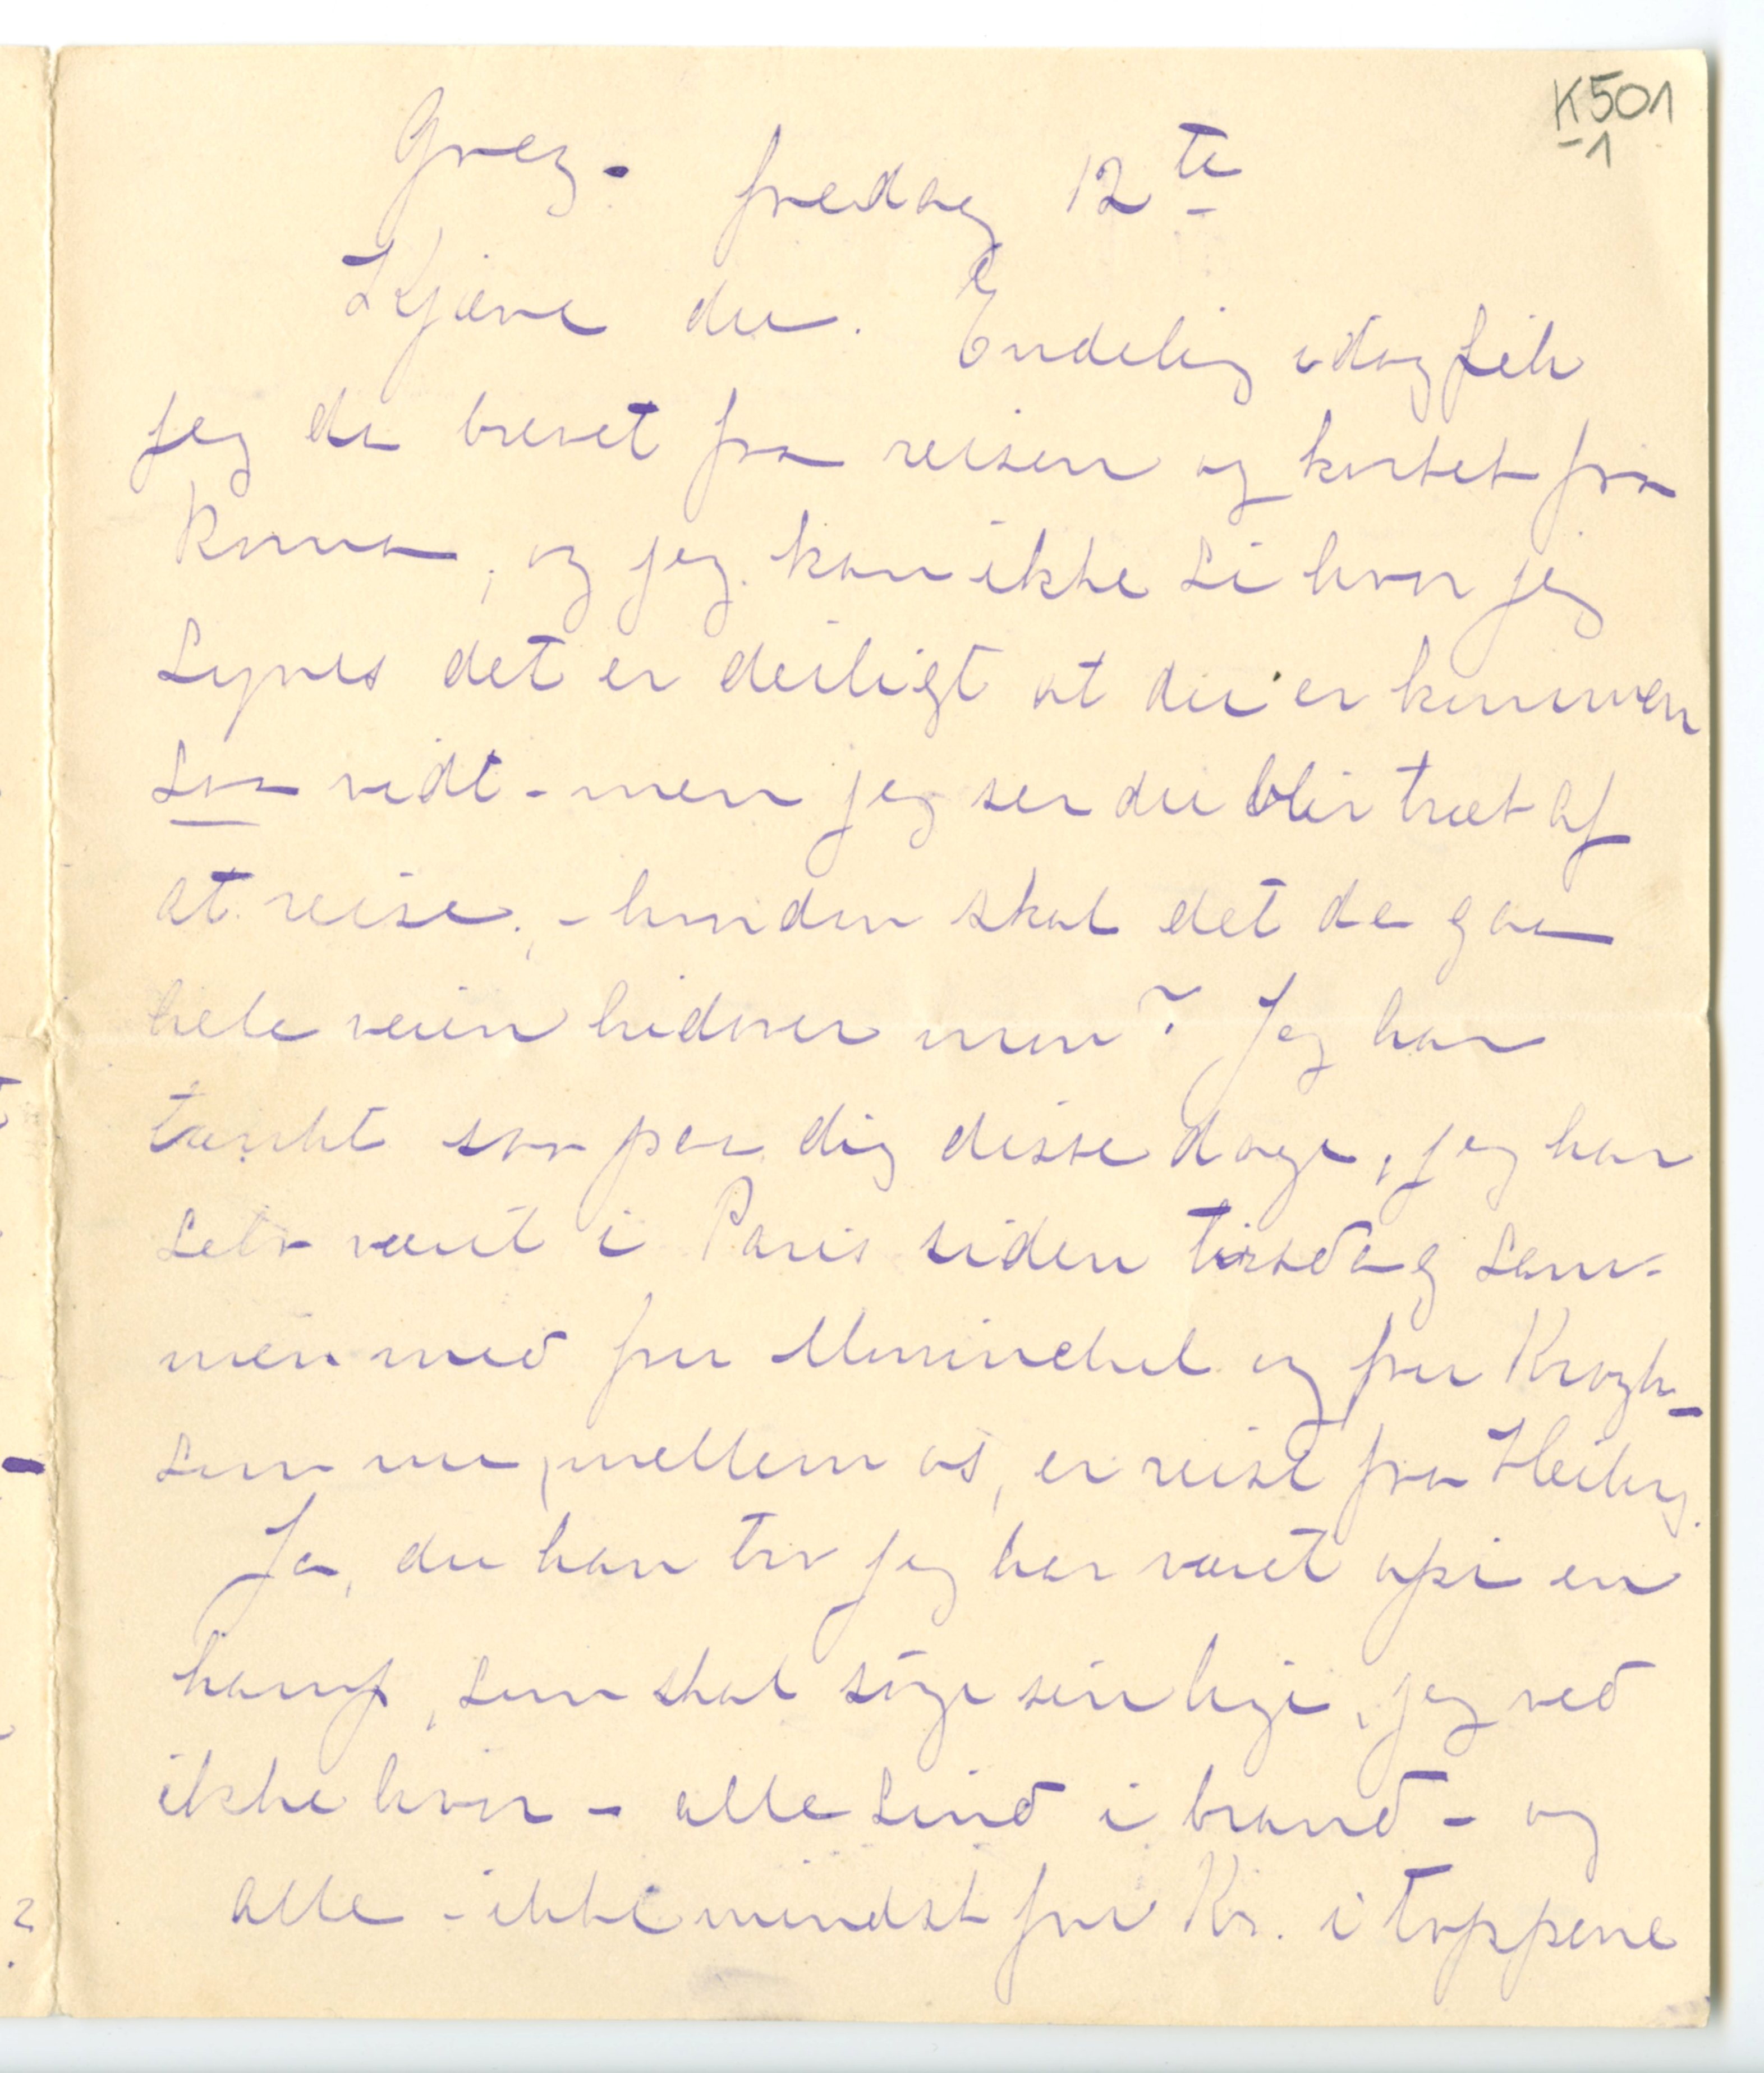 K501
-1
Grez. fredag 12te
Kjære du. Endelig idag fik
jeg da brevet fra reisen og kortet fra
Roma, og jeg kan ikke si hvor jeg
synes det er deiligt at du er kommen
saa vidt - men jeg ser du blir træt af
at reise, - hvordan skal det da gaa
hele veien hidover mon? Jeg har
tænkt saa paa dig disse dage, jeg har
selv været i Paris siden tirsdag sam-
men med fru og fru Krogh -
som nu, mellem os, er reist fra Heiberg.
Ja, du kan tro jeg har været opi en
kamp, som skal søge sin lige, jeg ved
ikke hvor - alle sind i brand - og
alle - ikke mindst fru Kr. i toppene